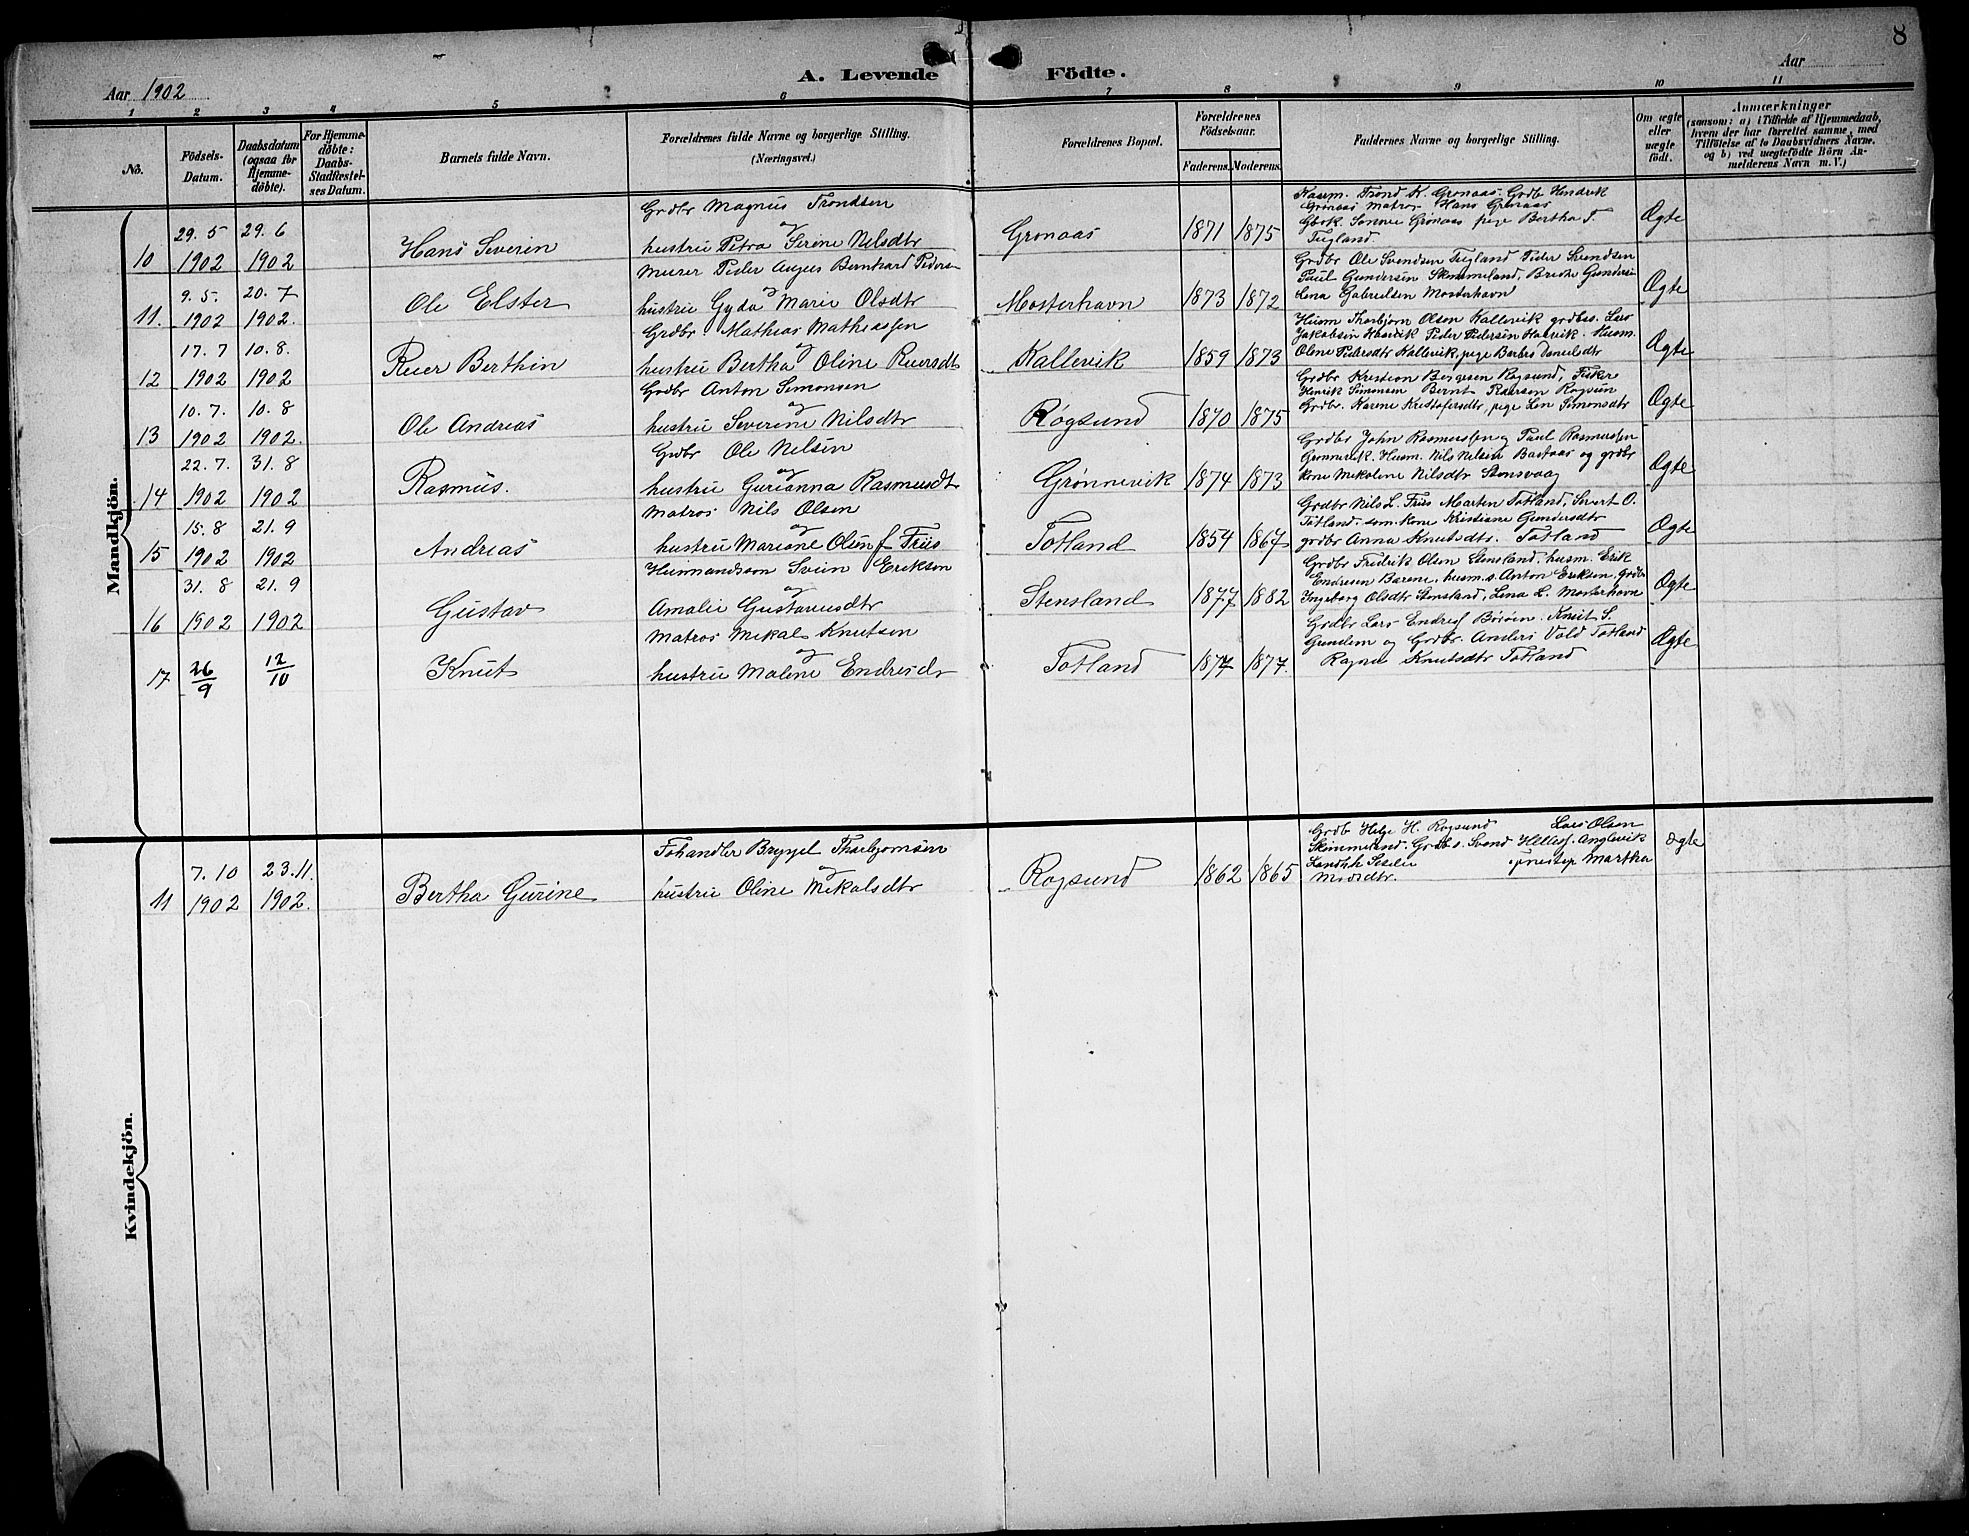 8
A. Levende Födte.
Aar 1902
Aar
1 2 3 4 5 6 7 8 9 10 11
No.
Födsels-Datum.
Daabsdatum (ogsaa for Hjemmedöbte).
For Hjemmedöbte: Daabs-Stadfæstelses Datum.
Barnets fulde Navn.
Forældrenes fulde Navne og borgerlige Stilling. (Næringsvei.)
Forældrenes Bopæl.
Forældrenes Födselsaar.
Faderens. Moderens.
Faddernes Navne og borgerlige Stilling.
Om ægte eller uægte födt.
Anmærkninger
(saasom: a) i Tilfælde af Hjemmedaab, hvem der har forrettet samme, med Tilföielse af to Daabsvidners Navne. og b) ved uægtefödte Börn Anmelderens Navn m. V.)
Mandkjön.
10 29. 5 1902 29. 6 1902 Hans Severin
Grdbr Magnus Trondsen og hustru Petra Serine Nilsdtr
Gronaas 1871 1875
Trond K. Gronaas. Grdb Hendrik
Gronaas Matros Hans Gronaas
Gronaas pige Bertha T.
Tugland.
Ægte
11. 9. 5. 1902 20. 7 1902. Ole Elster
Murer Peder Bernhard Peders og hustru Gyda Marie Olsdtr
Mosterhavn 1873 1872
Grdbr Ole Svendsen Tugland Peder Svendsen
Paul Gundersen Skimmeland, Gunders
Lena Gabrielsen Mosterhavn
Ægte
12 17. 7 1902 10. 8. 1902 Reier Berthin
Grdbr Mathias Mathiassen og hustru Bertha Oline Reiersdtr
Kallevik 1859 1873
Husm Thorbjörn Olsen Kallevik grdbs. Lars
Jakobsen Haavik Peder Pedersen Haavik. Husm.
Olene Pedersdtr Kallevik, pige Danielsdtr
Ægte
13 10. 7. 1902 10. 8 1902. Ole Andreas
Grdbr Anton Simonsen og hustru Severine Nilsdtr
Røgsund 1870 1875
Grdbr Kristian Røgsund, Fisker
Henrik Simonsen Bernt
Grdbr. Karene Kristofersdtr, pige Simonsdtr
Ægte
14 22. 7. 1902 31. 8 1902 Rasmus.
Grdbr Ole Nelsen og hustru Gurianna Rasmusdtr
Grønnevik 1874 1873
Grdbr John Rasmussen og Paul Rasmussen
Gronnevik. Husm. Nils Nelsen og grdbr
kone Mekoline Nilsdtr Stensvaag
Ægte
15 15. 8 1902 21. 9 1902 Andreas
Matros Nils Olsen og hustru Mariane Olsen f Friis
Totland 1854 1867
Grdbr Nils L. Friis Marten Totland, Sivert O.
Totland. kone Kristiane Gundersdtr
grdbr Anna Knutsdtr. Totland
Ægte
16 31. 8 1902 21. 9 1902 Gustav
Husmandsson Svein Erikson og Amalie Gustavusdtr
Stensland 1877 1882
Grdbr Fredrik Olsen Stensland, husm. Erik
Endresen husm. s. Anton Eriksen, Grdbr
Ingeborg Olsdtr Stensland, Lena L. Mosterhavn
Ægte
17 26/9 12/10 Knut
Matros Mekal Knutsen og hustru Malene Endresdr
Totland 1877 1877.
Grdbr Lars Knut S.
og Grdbr. Anders Totland
Ragna Knutsdtr Totland
Ægte
Kvindekjön.
11 7. 10 1902 23. 11. 1902. Bertha Gurine
Brynjel og hustru Oline Mekalsdtr
Rogsund 1862 1865
Grdb Helge H. Rogsund Lars Olsen
Skimmeland. Svend
Martha
Ægte